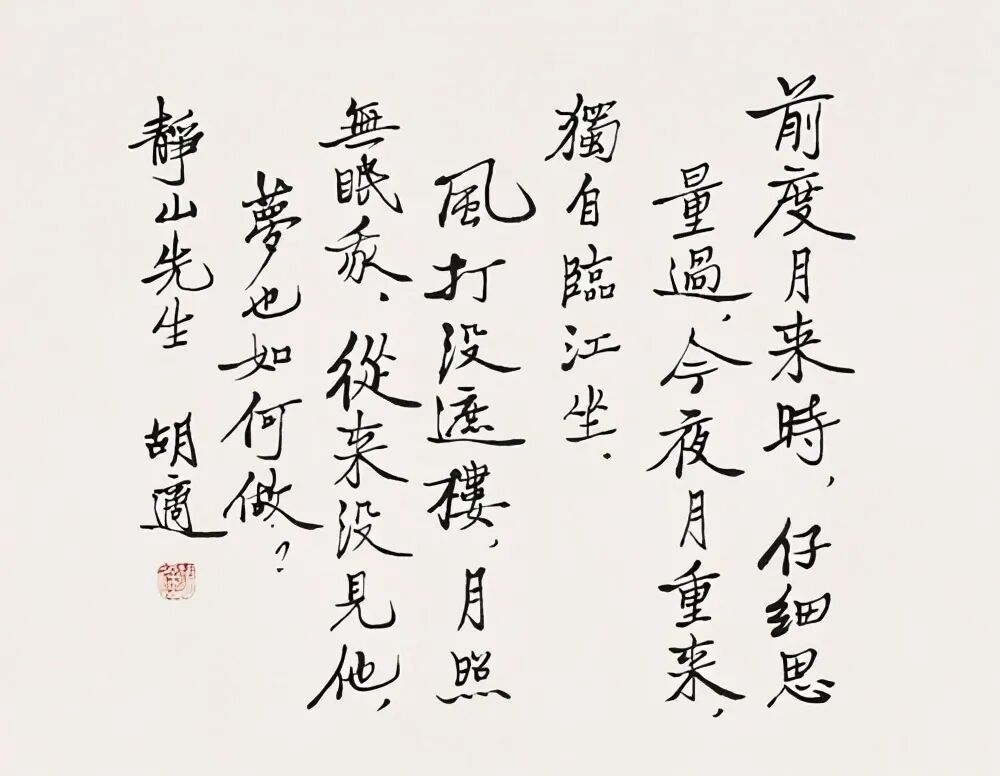 前度月来時，仔細思
量過，今夜月重来，
獨自臨江坐．
風打没遮樓，月照
無眠我．從来没見他，
夢也如何做？
靜山先生 胡適